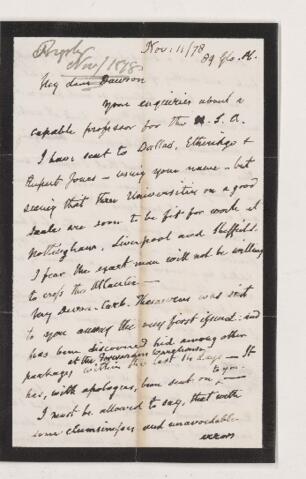 Nov. 11/78
Nov/1878
89 Glo. Pl.
My dear Dawson
Your enquiries about a
capable professor for the U. S. A.
I have sent to Dallas, Etheridge &
Rupert Jones – using your name – but
seeing that three Universities on a good
scale are soon to be fit for work at
Nottingham, Liverpool and Sheffield,
I fear the exact man will not be willing
to cross the Atlantic –
My Devon.-Carb. Thesaurus was sent
to you among the very first issued: and
has been discovered hid among other
packages within the last 14 days – It
at the
to you –
has, with apologies, been sent on
I must be allowed to say, that with
some clumsiness and unavoidable
errors